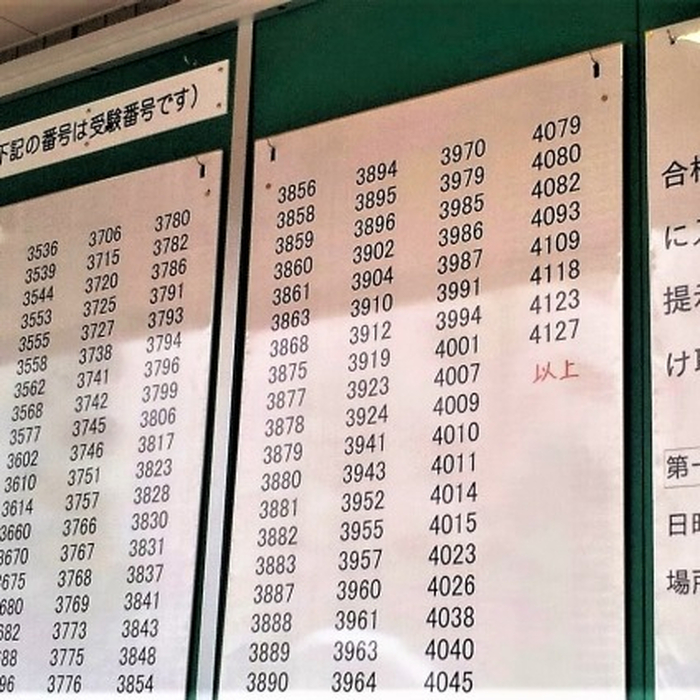 下記の番号は受験番号です）
3536
3539
3544
3553
3555
3558
3562
3568
3577
3602
3610
3614
3660
3670
3675
680
682
88
96
3706
3715
3720
3725
3727
3738
3741
3742
3745
3746
3751
3757
3766
3767
3768
3769
3773
3775
3776
3780
3782
3786
3791
3793
3794
3796
3799
3806
3817
3823
3828
3830
3831
3837
3841
3843
3848
3854
3856
3858
3859
3860
3861
3863
3868
3875
3877
3878
3879
3880
3881
3882
3883
3887
3888
3889
3890
3894
3895
3896
3902
3904
3910
3912
3919
3923
3924
3941
3943
3952
3955
3957
3960
3961
3963
3964
3970
3979
3985
3986
3987
3991
3994
4001
4007
4009
4010
4011
4014
4015
4023
4026
4038
4040
4045
4079
4080
4082
4093
4109
4118
4123
4127
以上
合格
に
提示
け
第一
日時
場所